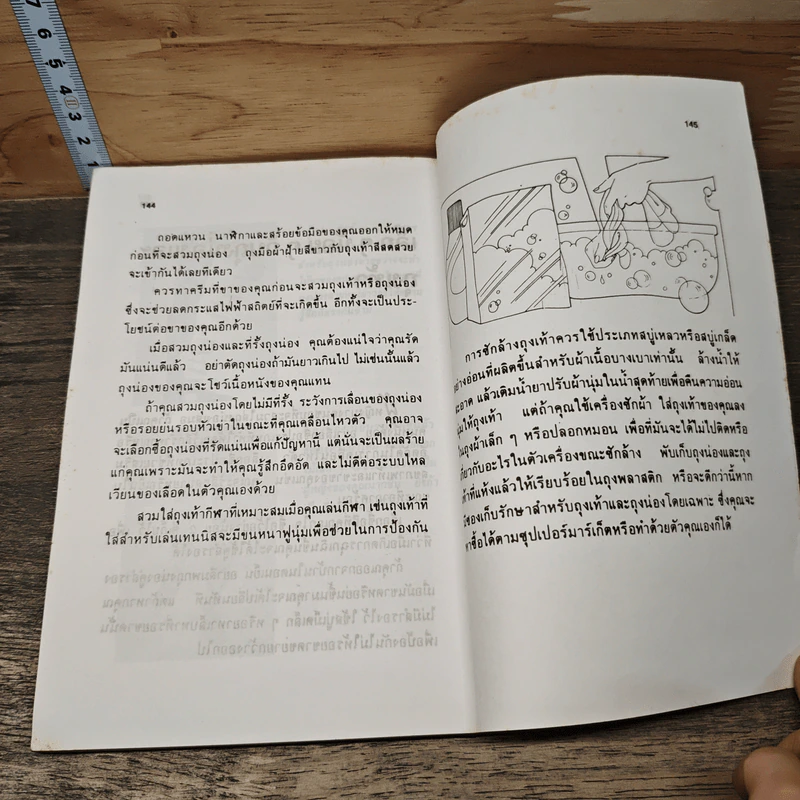 7
6
5
4
3
2
1
144
ถอดแหวน นาฬิกาและสร้อยข้อมือของคุณออกให้หมด
ก่อนที่จะสวมถุงน่อง ถุงมือผ้าฝ้ายสีขาวกับถุงเท้าสีสดสวย
จะเข้ากันได้เลยทีเดียว
ควรทาครีมที่ขาของคุณก่อนจะสวมถุงเท้าหรือถุงน่อง
ซึ่งจะช่วยลดกระแสไฟฟ้าสถิตย์ที่จะเกิดขึ้น อีกทั้งจะเป็นประ-
โยชน์ต่อขาของคุณอีกด้วย
เมื่อสวมถุงน่องและที่รั้งถุงน่อง คุณต้องแน่ใจว่าคุณรัด
มันแน่นดีแล้ว อย่าตัดถุงน่องถ้ามันยาวเกินไป ไม่เช่นนั้นแล้ว
ถุงน่องของคุณจะโชว์เนื้อหนังของคุณแทน
ถ้าคุณสวมถุงน่องโดยไม่มีที่รั้ง ระวังการเลื่อนของถุงน่อง
หรือรอยย่นรอบหัวเข่าในขณะที่คุณเคลื่อนไหวตัว คุณอาจ
จะเลือกซื้อถุงน่องที่รัดแน่นเพื่อแก้ปัญหานี้ แต่นั่นจะเป็นผลร้าย
แก่คุณเพราะมันจะทำให้คุณรู้สึกอึดอัด และไม่ดีต่อระบบไหล
เวียนของเลือดในตัวคุณเองด้วย
สวมใส่ถุงเท้ากีฬาที่เหมาะสมเมื่อคุณเล่นกีฬา เช่นถุงเท้าที่
ใส่สำหรับเล่นเทนนิสจะมีขนหนาฟูนุ่มเพื่อช่วยในการป้องกัน
145
การซักล้างถุงเท้าควรใช้ประเภทสบู่เหลวหรือสบู่เกล็ด
อย่างอ่อนที่ผลิตขึ้นสำหรับผ้าเนื้อบางเบาเท่านั้น ล้างน้ำให้
สะอาด แล้วเติมน้ำยาปรับผ้านุ่มในน้ำสุดท้ายเพื่อคืนความอ่อน
นุ่มให้ถุงเท้า แต่ถ้าคุณใช้เครื่องซักผ้า ใส่ถุงเท้าของคุณลง
ในถุงผ้าเล็ก ๆ หรือปลอกหมอน เพื่อที่มันจะได้ไม่ไปติดหรือ
เกี่ยวกับอะไรในตัวเครื่องขณะซักล้าง พับเก็บถุงน่องและถุง
เท้าที่แห้งแล้วให้เรียบร้อยในถุงพลาสติก หรือจะดีกว่านี้หาก
มีซองเก็บรักษาสำหรับถุงเท้าและถุงน่องโดยเฉพาะ ซึ่งคุณจะ
หาซื้อได้ตามซุปเปอร์มาร์เก็ตหรือทำด้วยตัวคุณเองก็ได้